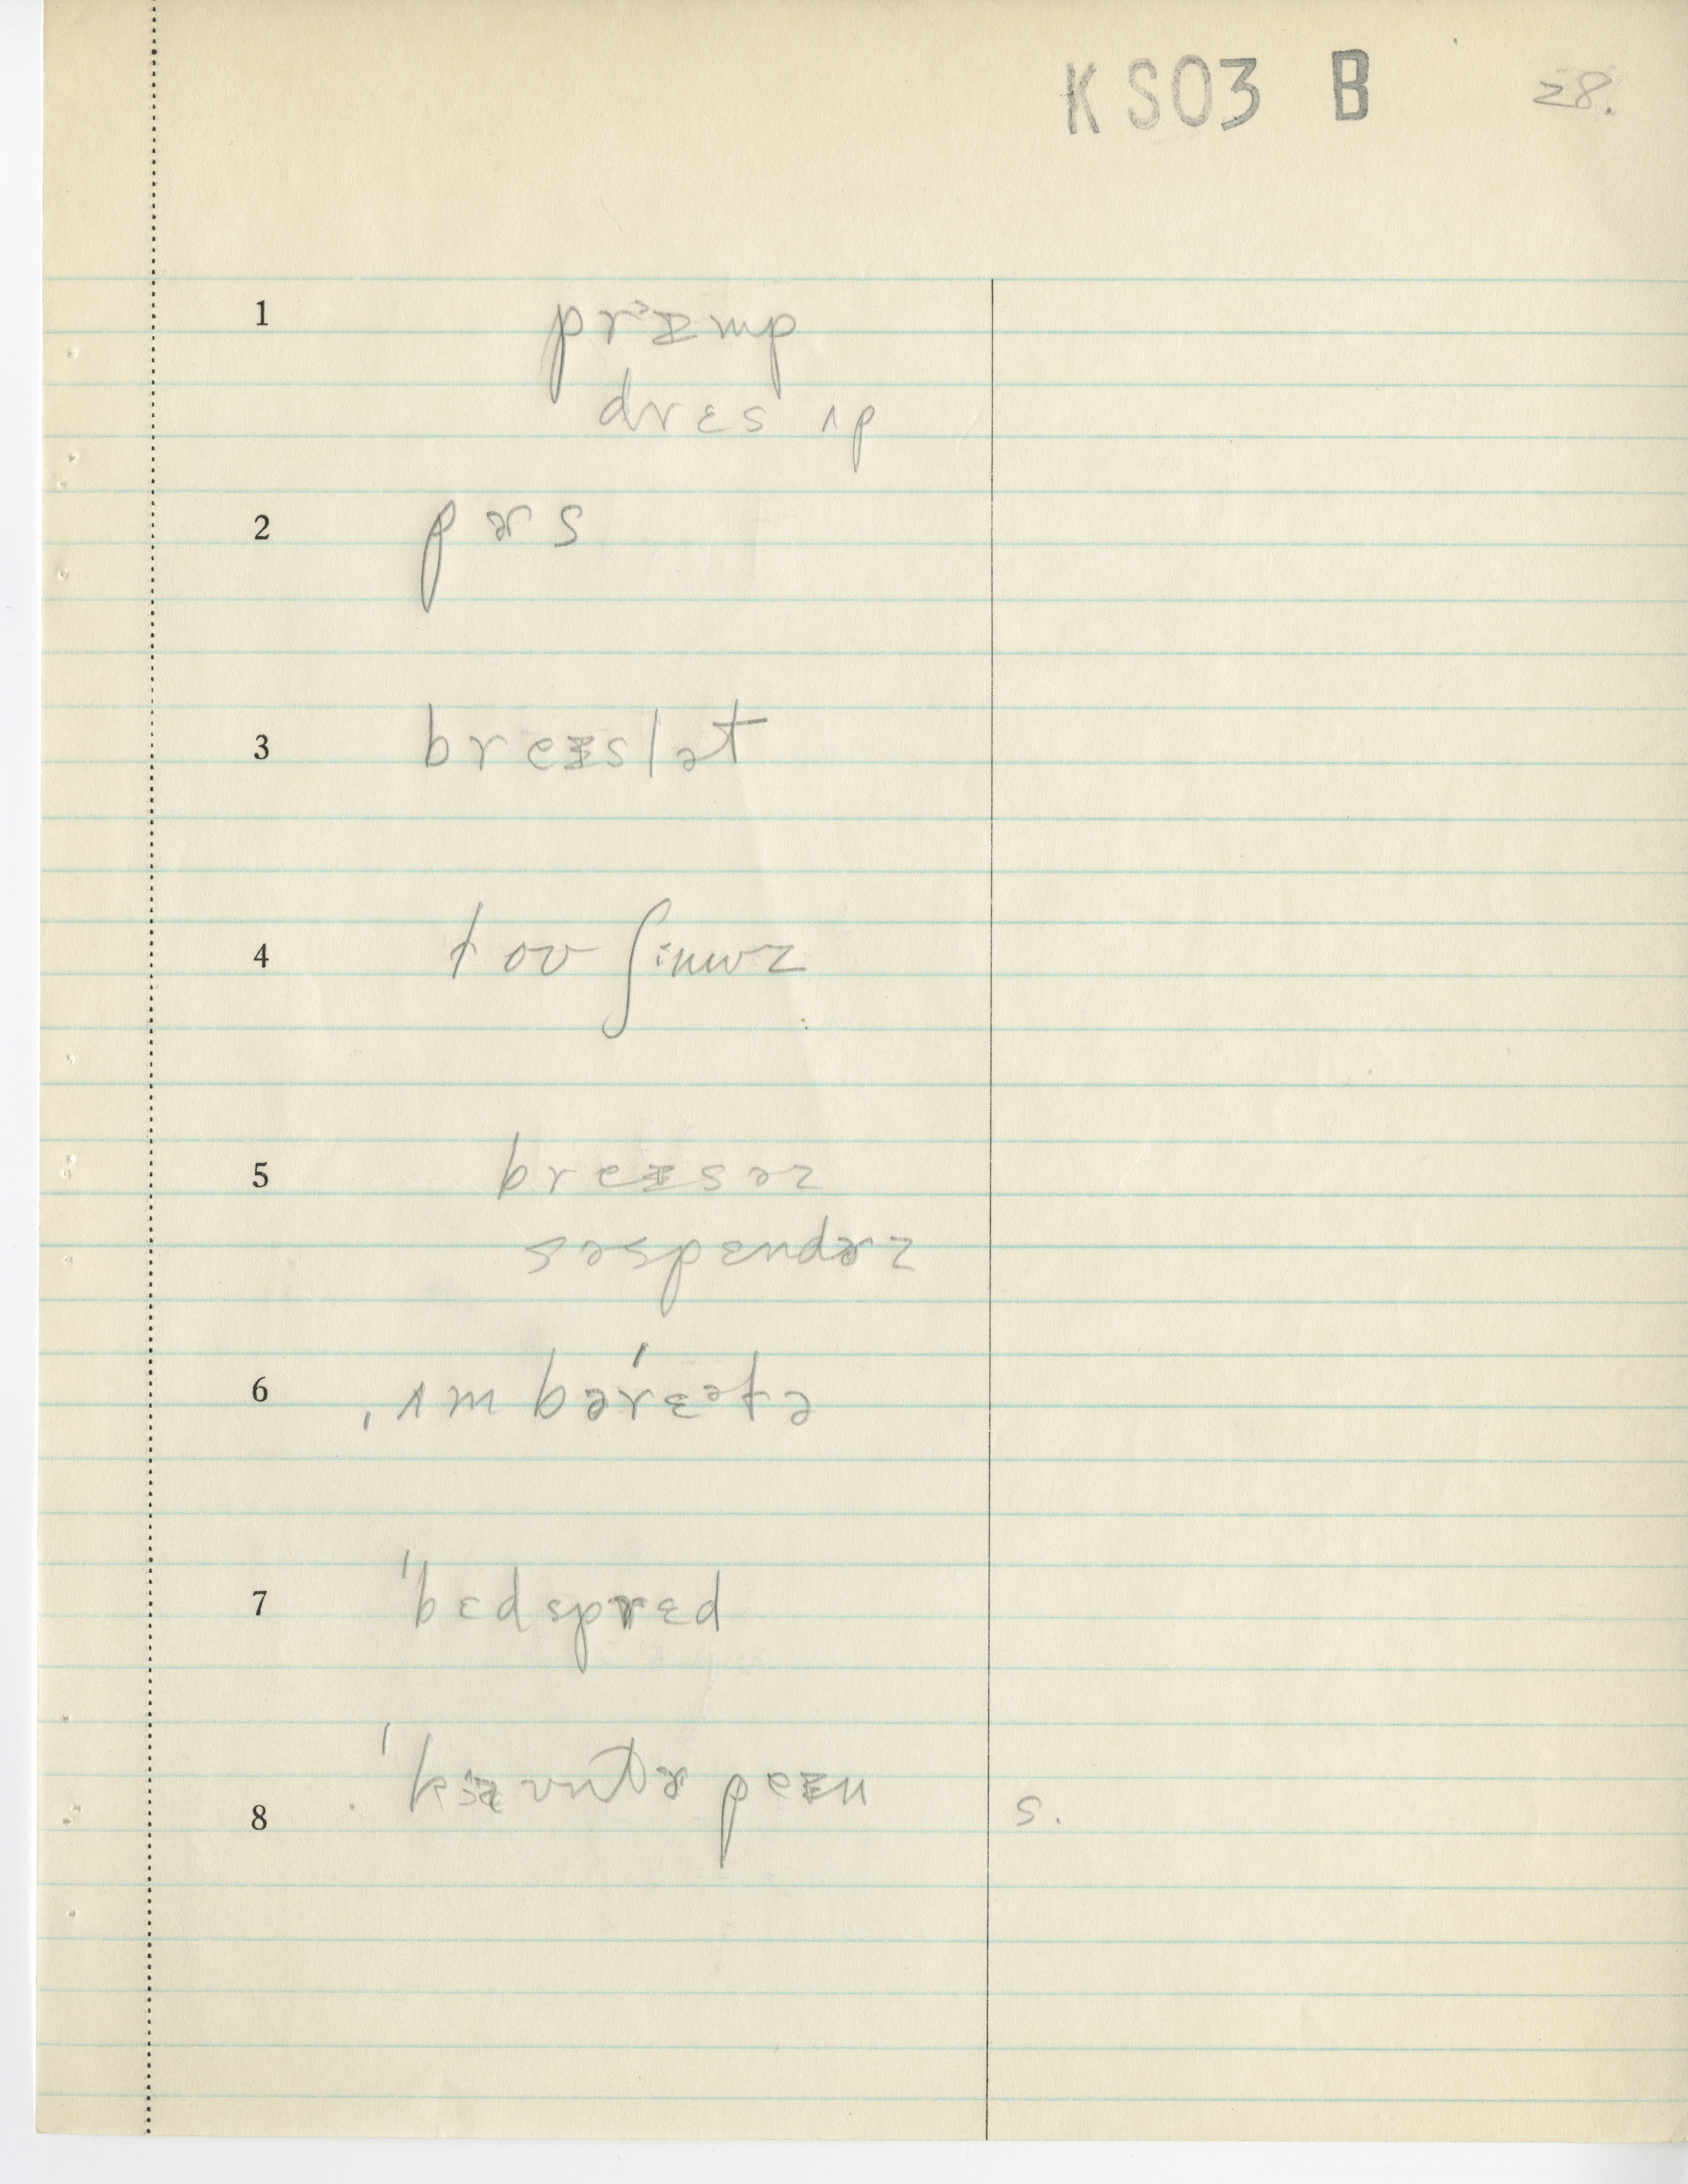 KSO3 B 28.
1 prᵊɪmp
drɛs ʌp
2 pɚs
3 breɪslət
4 tov ʃinwz
5 breɪsəz
səspɛndɚz
6 ˌʌmbəˈrɛᵊlə
7 ˈbɛdspred
8 peɪn s.